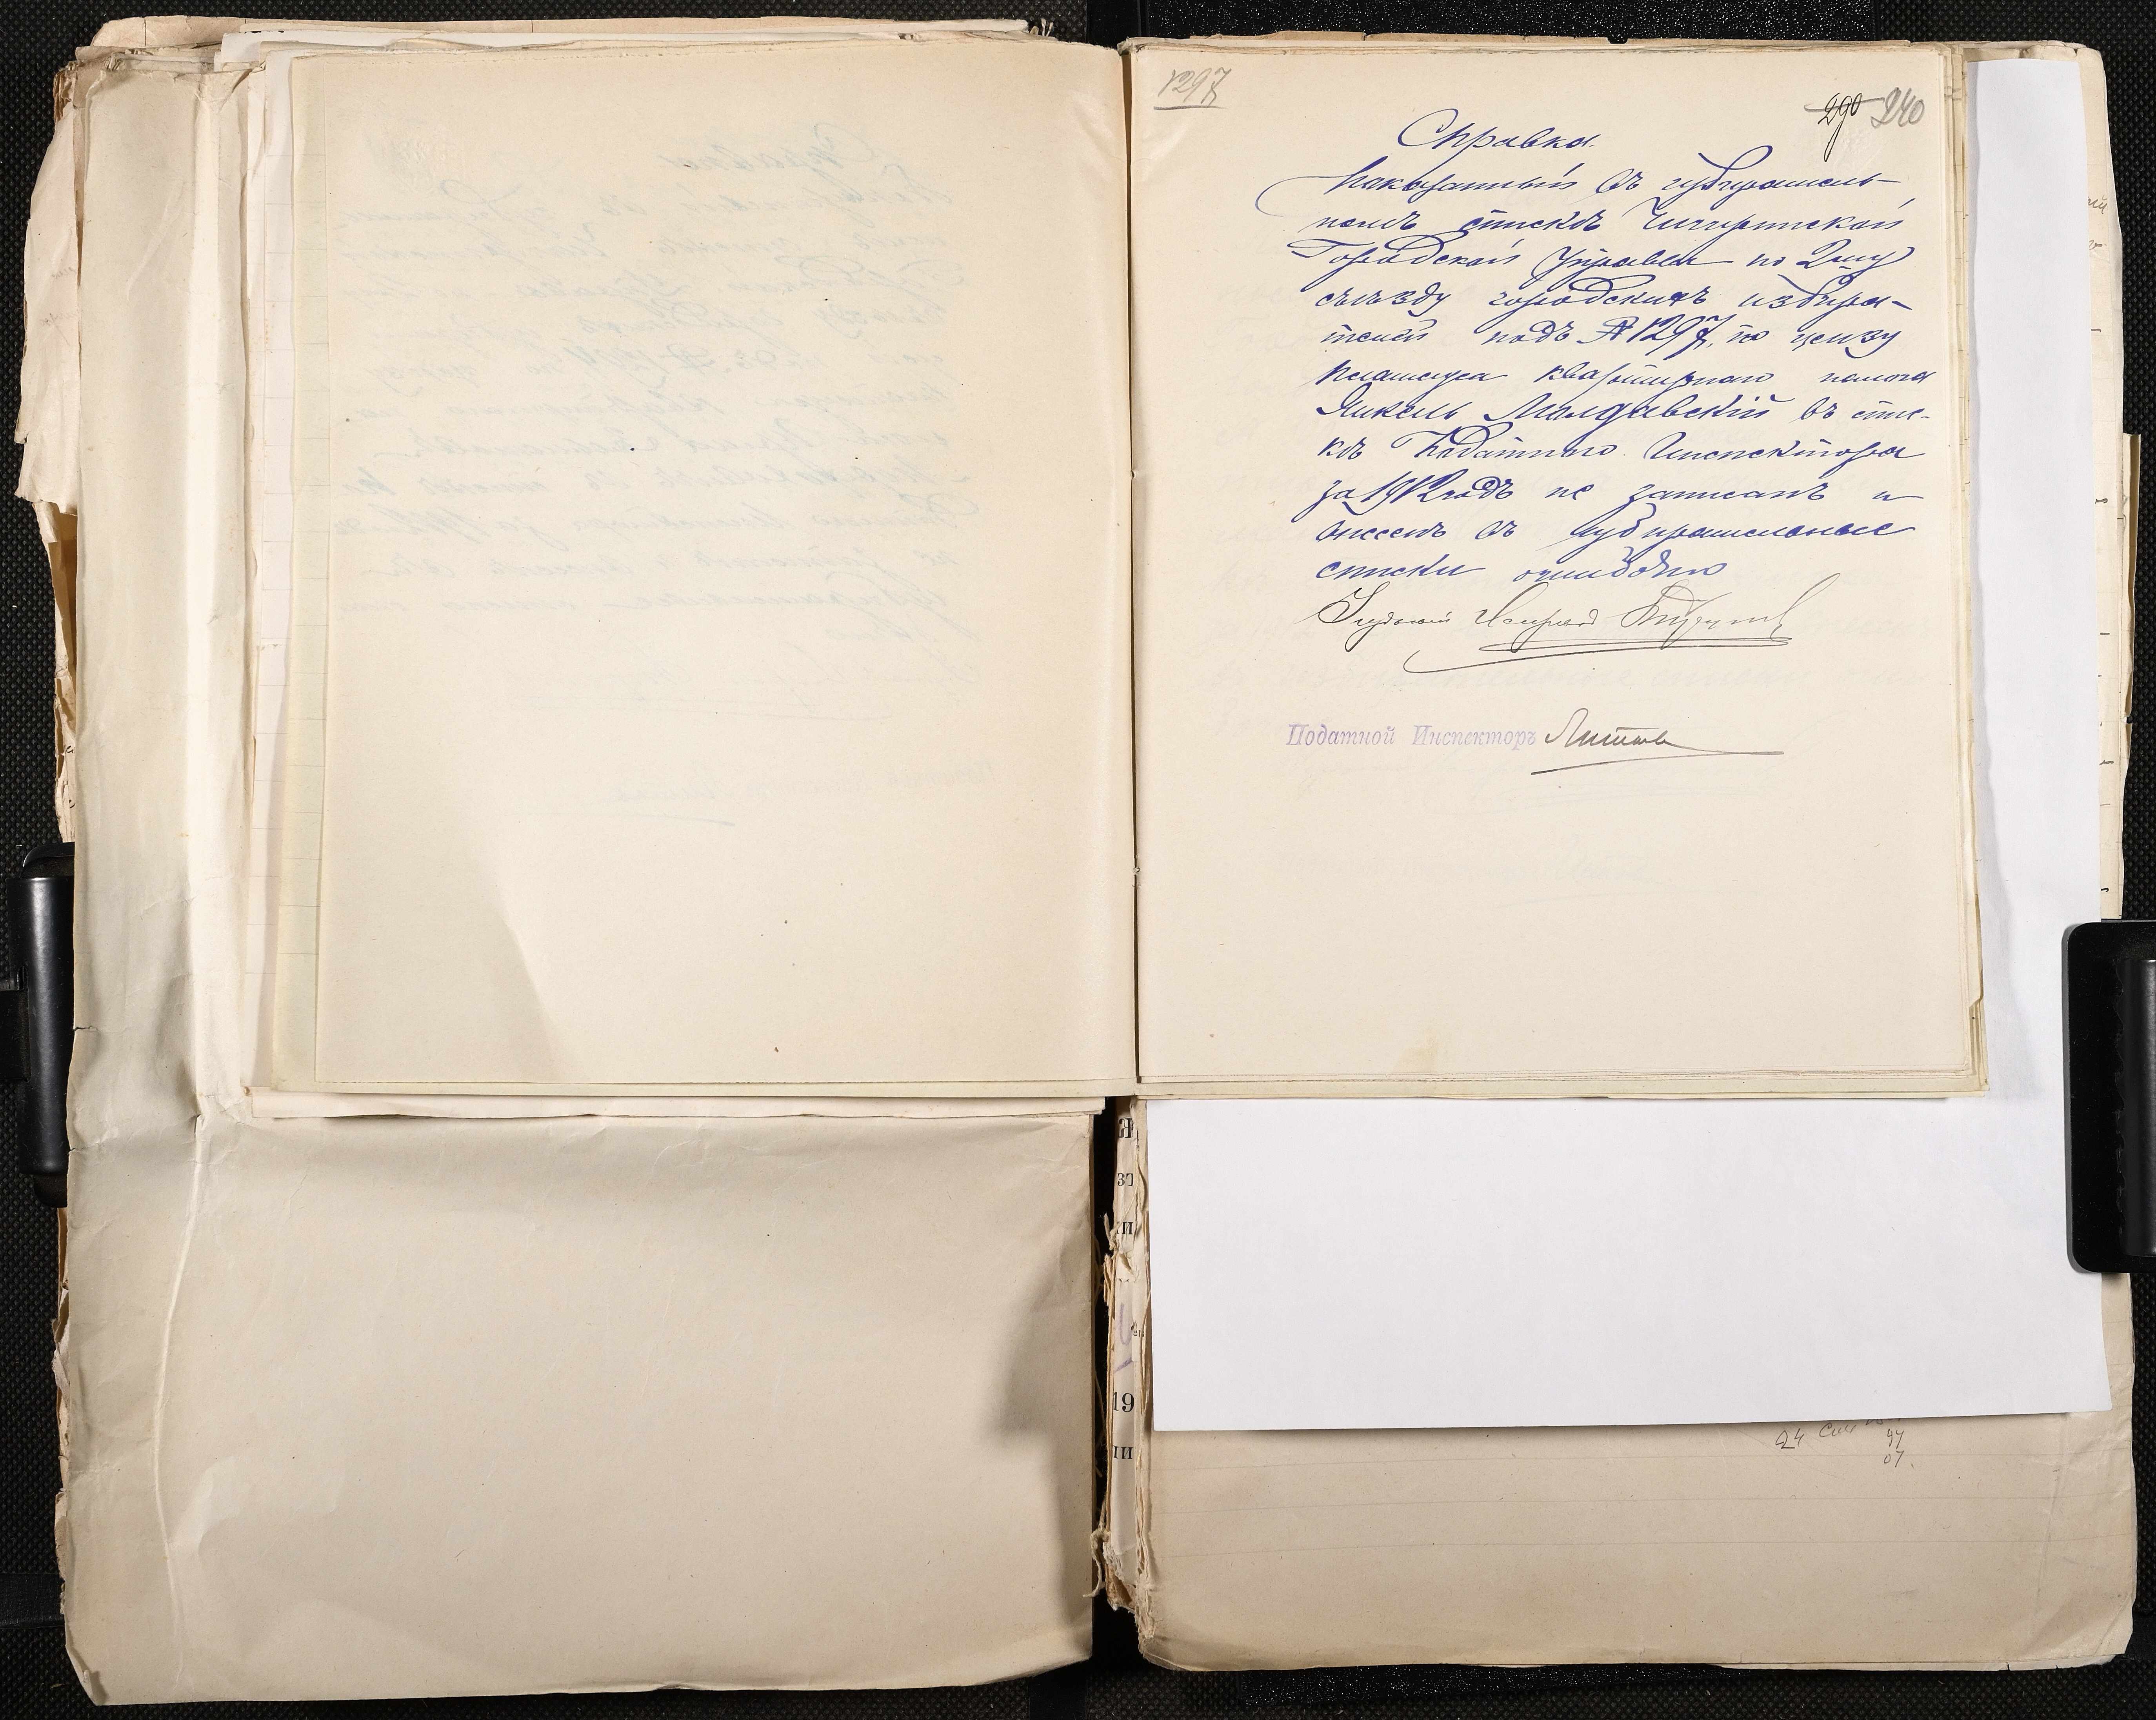 1297
290 240
Справка.
Показанный въ избиратель-
номъ спискѣ Чигиринской
Городской Управы по 2му
съѣзду городскихъ избира-
телей подъ № 1297, по цензу
плательщика квартирнаго налога
Янкель Молдавскій въ спис-
кѣ Податного Инспектора
за 1912 годъ не записанъ и
внесенъ въ избирательные
списки ошибочно
Податной Инспекторъ
19
24
97
07.